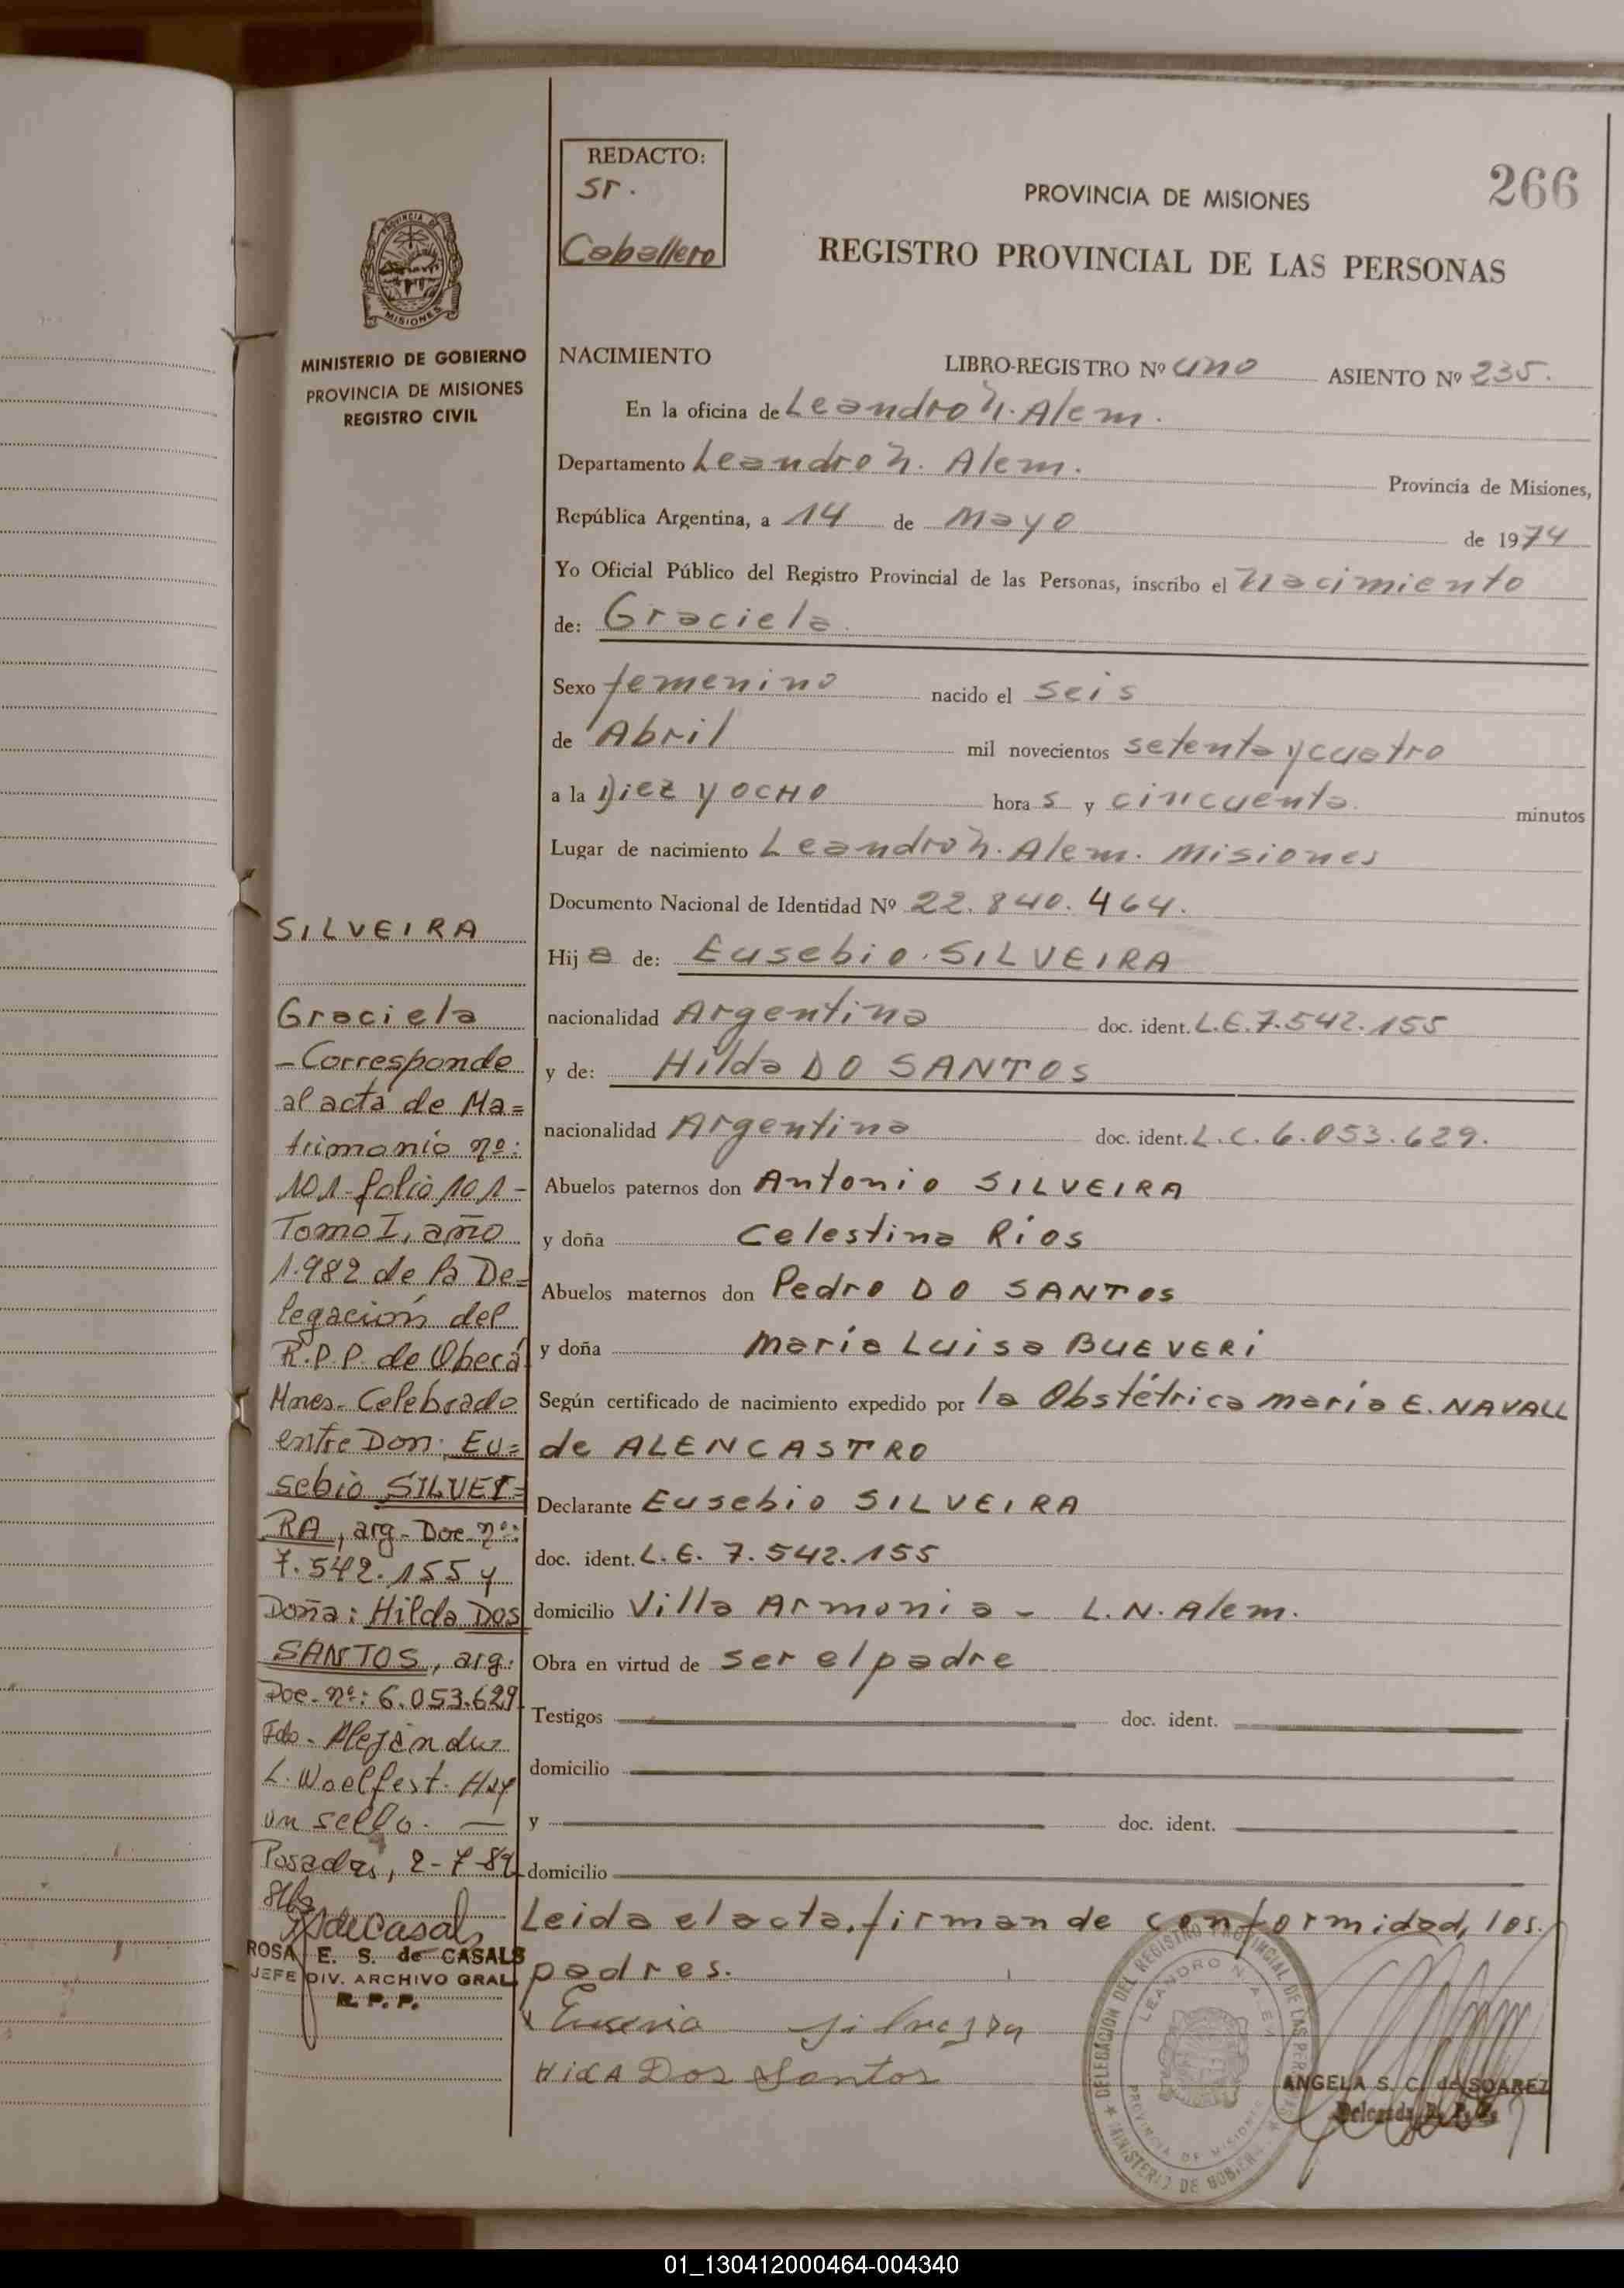 REDACTO:
Sr.
Caballero
PROVINCIA DE MISIONES
266
REGISTRO PROVINCIAL DE LAS PERSONAS
PROVINCIA DE
MISIONES
MINISTERIO DE GOBIERNO
PROVINCIA DE MISIONES
REGISTRO CIVIL
NACIMIENTO LIBRO-REGISTRO Nº uno ASIENTO Nº 235.
En la oficina de Leandro N. Alem.
Departamento Leandro N. Alem. Provincia de Misiones,
República Argentina, a 14 de Mayo de 1974
Yo Oficial Público del Registro Provincial de las Personas, inscribo el Nacimiento
de: Graciela
Sexo femenino nacido el seis
de Abril mil novecientos setenta y cuatro
a la Diez y OCHO hora s y cincuenta minutos
Lugar de nacimiento Leandro N. Alem. Misiones
Documento Nacional de Identidad Nº 22.840.464.
Hij a de: Eusebio SILVEIRA
nacionalidad Argentina doc. ident. L.E. 7.542.155
y de: Hilda DO SANTOS
nacionalidad Argentina doc. ident. L.C. 6.053.629.
Abuelos paternos don Antonio SILVEIRA
y doña Celestina Ríos
Abuelos maternos don Pedro DO SANTOS
y doña María Luisa BUEVERI
Según certificado de nacimiento expedido por la Obstétrica maría E. NAVALL
de ALENCASTRO
Declarante Eusebio SILVEIRA
doc. ident. L.E. 7.542.155
domicilio Villa Armonia - L.N. Alem.
Obra en virtud de ser el padre
Testigos doc. ident.
domicilio
y doc. ident.
domicilio
Leida el acta, firman de conformidad, los
padres.
Hilda Dos Santos
SILVEIRA
Graciela
- Corresponde
al acta de Ma=
trimonio nº:
101 - folio 101 -
Tomo I, año
1.982 de la De=
legación del
R.P.P. de Oberá
Mnes - Celebrado
entre Don: Eu=
sebio SILVEI=
RA, arg - Doc. nº:
7.542.155 y
Doña: Hilda DOS
SANTOS, arg:
Doc. nº: 6.053.629
Fdo - Alejandro
L. Woelfert. Hay
un sello. —
Posadas, 2-7-84
ROSA E. S. de CASALS
JEFE DIV. ARCHIVO GRAL.
R. P. P.
DELEGACION DEL REGISTRO PROVINCIAL DE LAS PERSONAS
LEANDRO N. ALEM
PROVINCIA DE MISIONES
MINISTERIO DE GOBIERNO
ANGELA S. C. de SOAREZ
Delegada R. P. P.
01_130412000464-004340